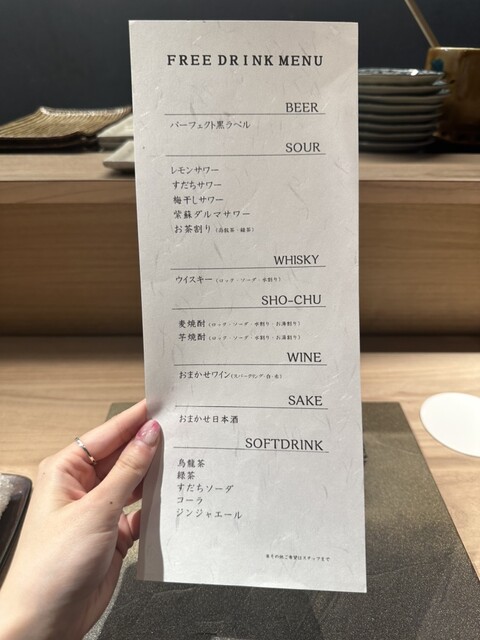 FREE DRINK MENU
BEER
パーフェクト黒ラベル
SOUR
レモンサワー
すだちサワー
梅干しサワー
紫蘇ダルマサワー
お茶割り（烏龍茶・緑茶）
WHISKY
ウイスキー（ロック・ソーダ・水割り）
SHO-CHU
麦焼酎（ロック・ソーダ・水割り・お湯割り）
芋焼酎（ロック・ソーダ・水割り・お湯割り）
WINE
おまかせワイン（スパークリング・白・赤）
SAKE
おまかせ日本酒
SOFTDRINK
烏龍茶
緑茶
すだちソーダ
コーラ
ジンジャエール
※その他ご希望はスタッフまで